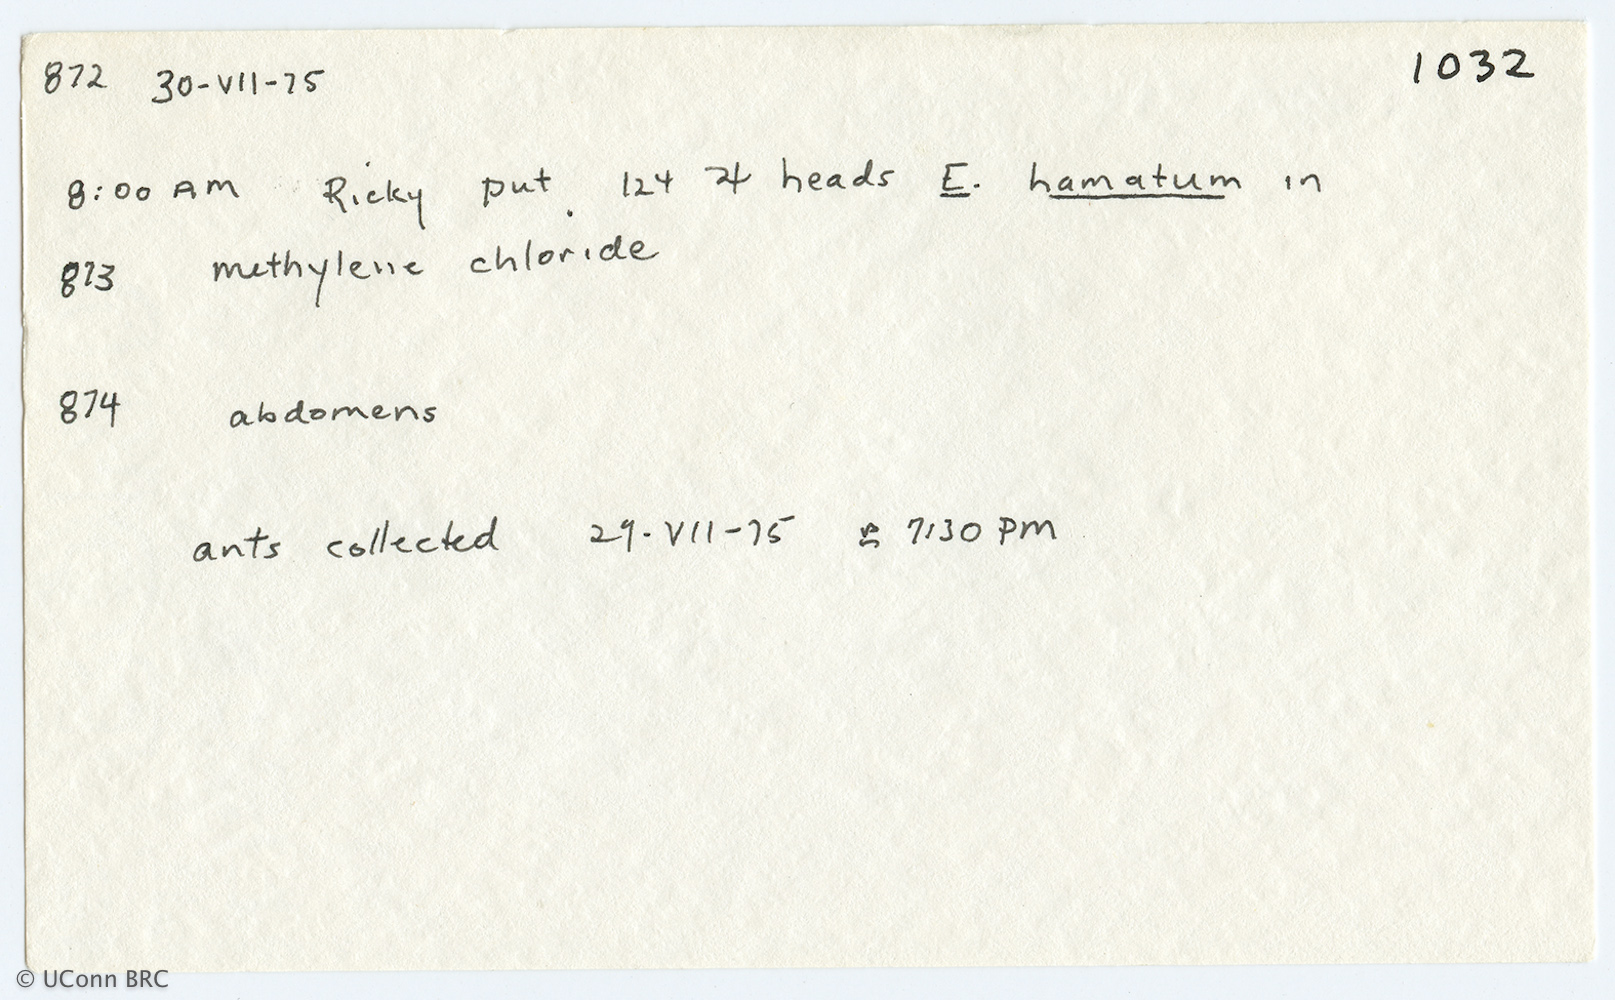 872 30-VII-75 1032
8:00 AM Ricky put 124 ♃ heads E. hamatum in
873 methylene chloride
874 abdomens
ants collected 29-VII-75 ≈ 7:30 PM
© UConn BRC